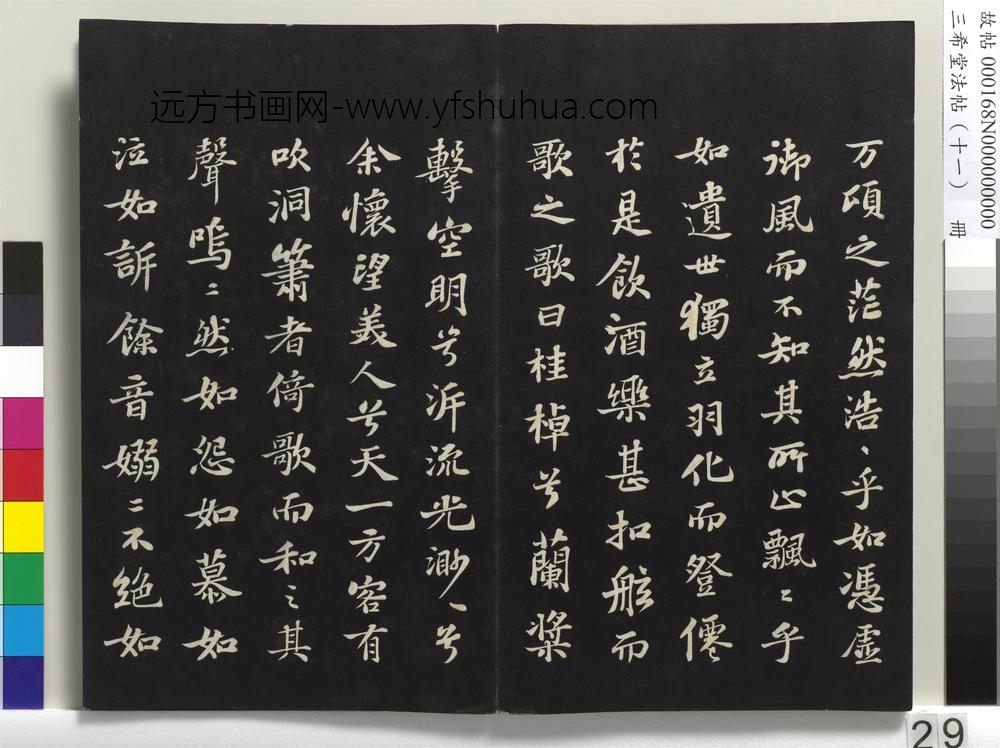 万頃之茫然浩〻乎如憑虛
御風而不知其所止飄〻乎
如遺世獨立羽化而登僊
於是飲酒樂甚扣舷而
歌之歌曰桂棹兮蘭槳
擊空明兮泝流光渺〻兮
余懷望美人兮天一方客有
吹洞簫者倚歌而和之其
聲嗚〻然如怨如慕如
泣如訴餘音嫋〻不絕如
远方书画网-www.yfshuhua.com
故帖 000168N000000000
三希堂法帖（十一） 冊
29